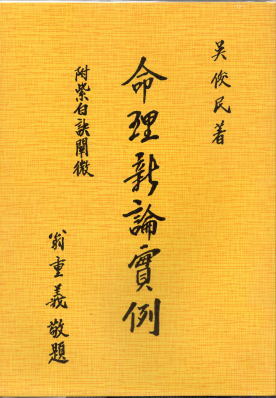 吳俊民著
命理新論實例
附紫白訣闡微
翁重義敬題